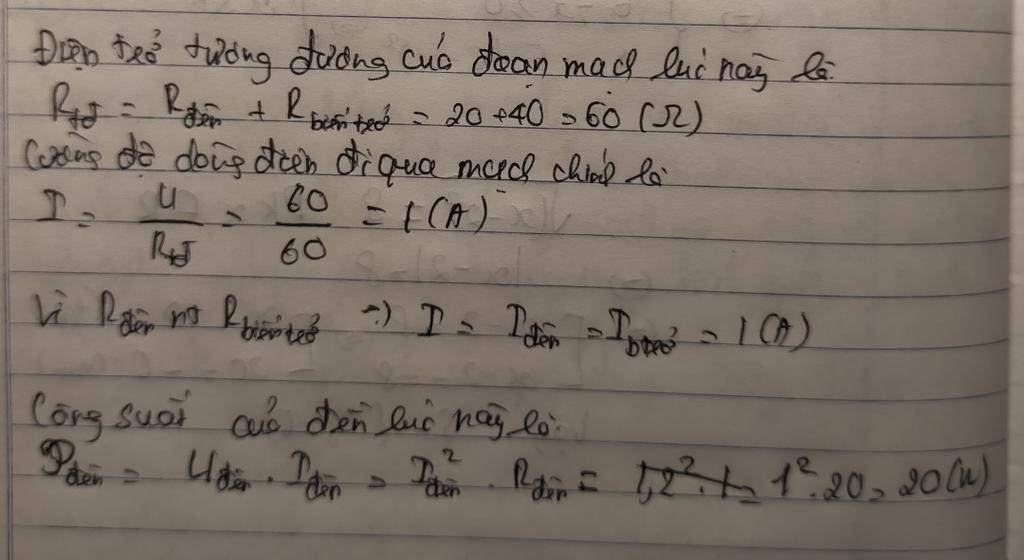 Điện trở tương đương của đoạn mạch lúc này là:
Rtđ = Rđèn + Rbiến trở = 20 + 40 = 60 (Ω)
Cường độ dòng điện đi qua mạch chính là
I = U/Rtđ = 60/60 = 1 (A)
Vì Rđèn nt Rbiến trở => I = Iđèn = Ib trở = 1 (A)
Công suất của đèn lúc này là:
Pđèn = Uđèn . Iđèn = I²đèn . Rđèn = 1² . 20 = 20 (W)